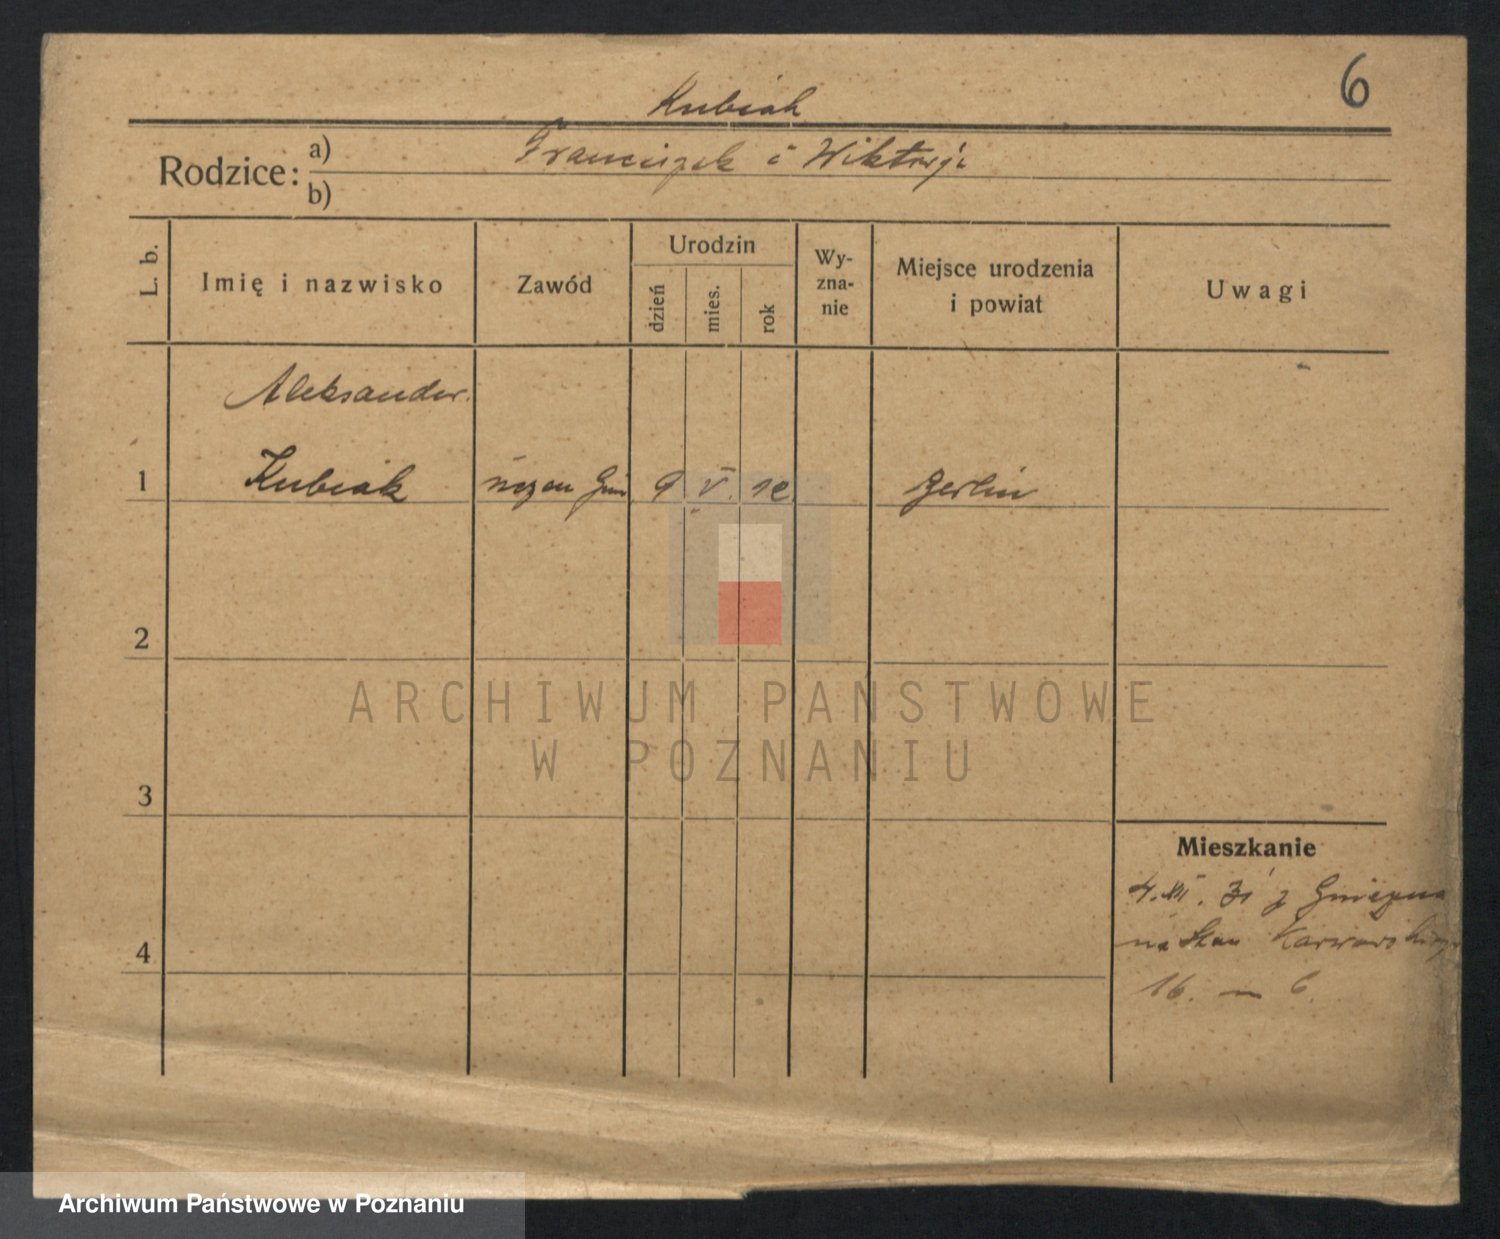 6
Kubiak
Rodzice: a) Franciszek i Wiktorja
b)
L. b.
Imię i nazwisko
Zawód
Urodzin
dzień
mies.
rok
Wy-
zna-
nie
Miejsce urodzenia
i powiat
Uwagi
Aleksander
1 Kubiak uczeń Gim 9 V. 12 Berlin
2
3
4
Mieszkanie
4. XII. 31 z Gniezna
na Skar
16. — 6.
ARCHIWUM PAŃSTWOWE
W POZNANIU
Archiwum Państwowe w Poznaniu